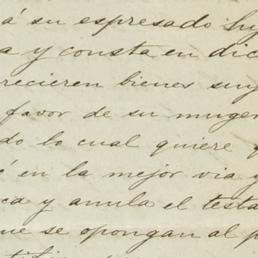 á su espresado hij
a y consta en dic
recieren bienes suf
favor de su muger
do lo cual quiere
é en la mejor via y
ca y anula el testa
que se opongan al p